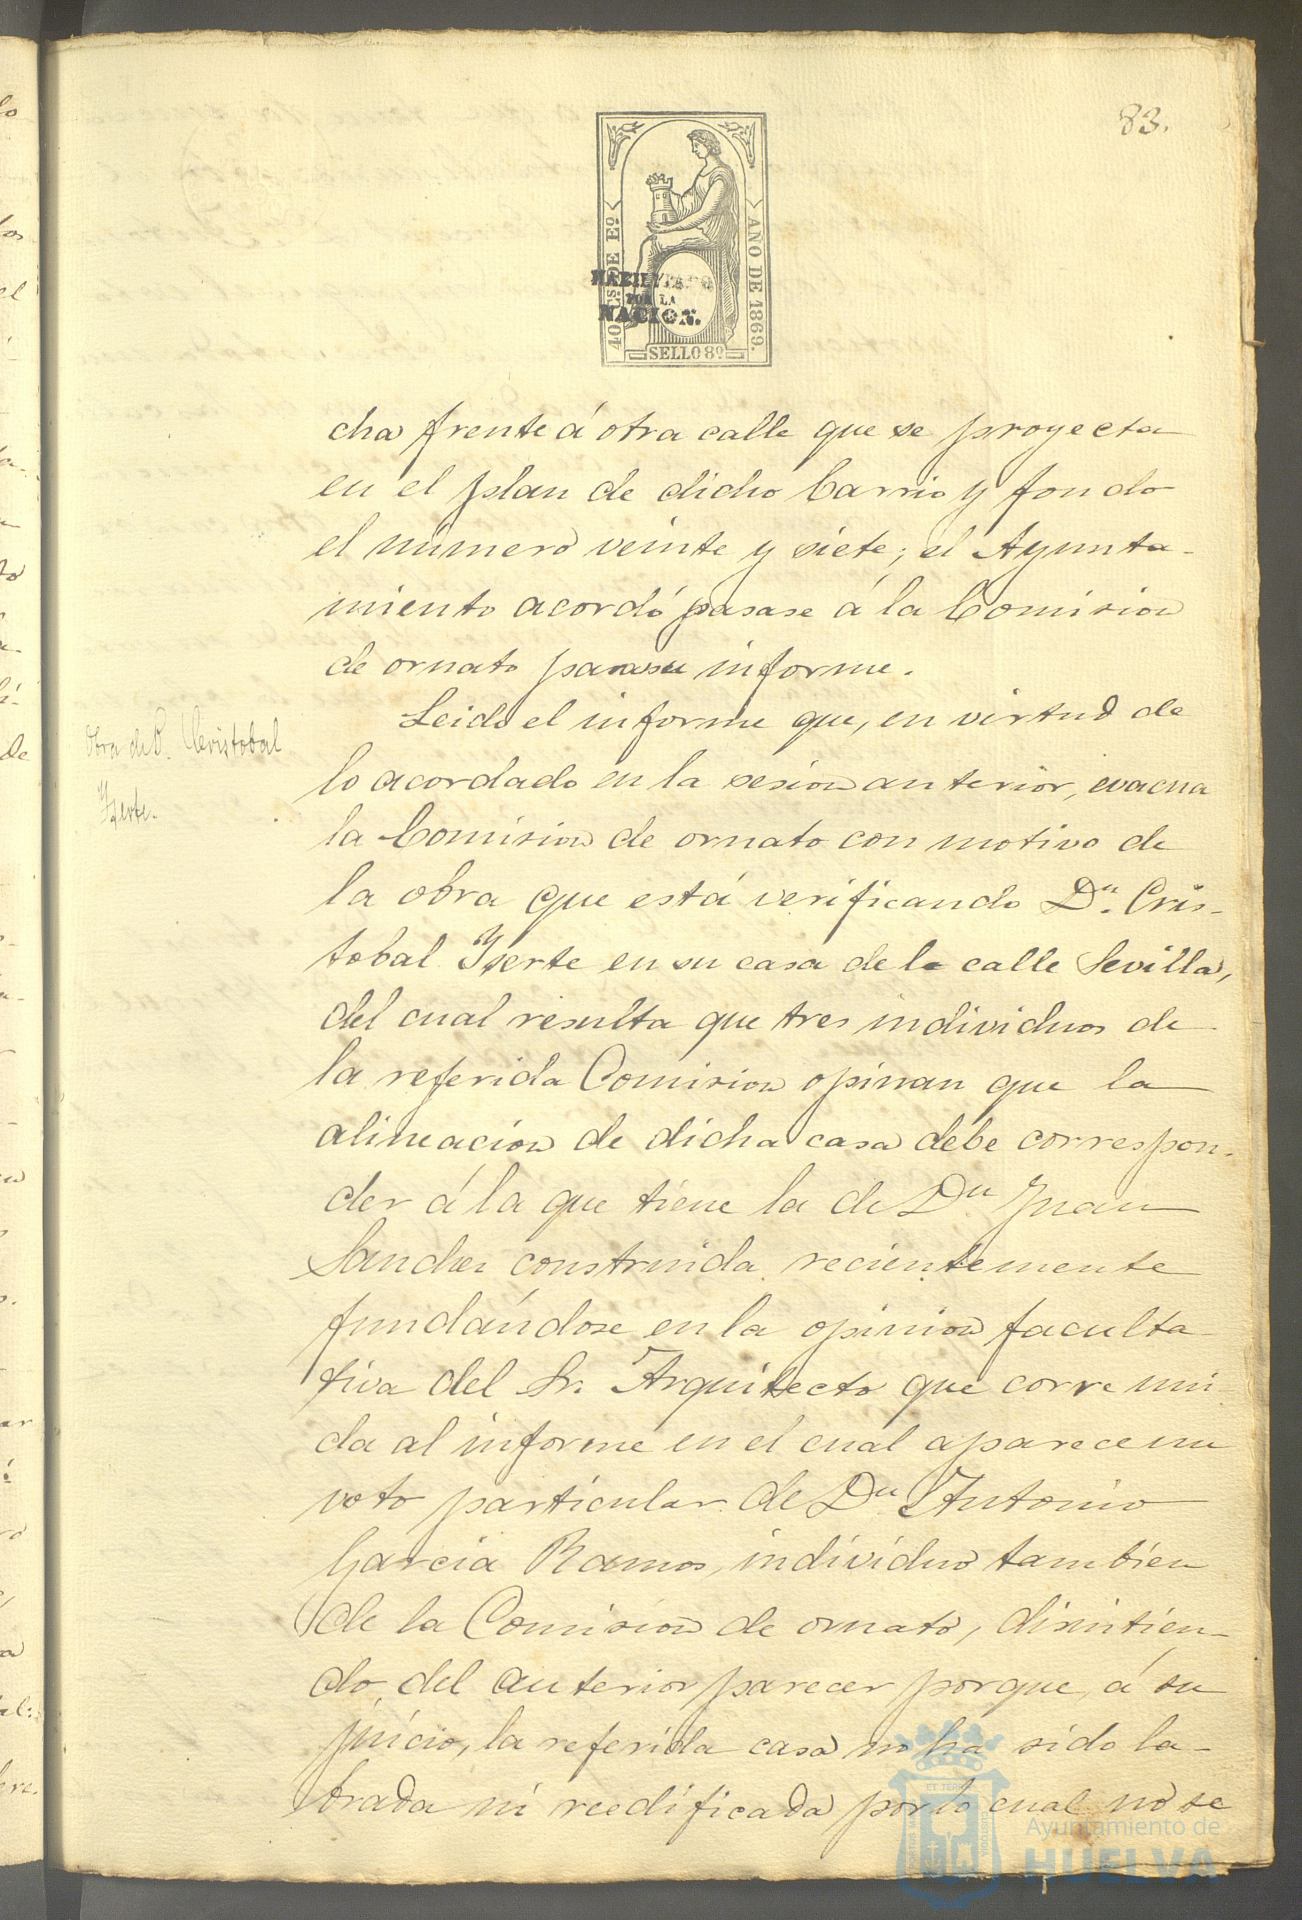 83.
40 Cs. DE Eº
AÑO DE 1869.
HABILITADO
POR LA
NACION.
SELLO 8º
cha frente á otra calle que se proyecta
en el plan de dicho barrio y fondo
el número veinte y siete; el Ayunta-
miento acordó pasase á la Comision
de ornato para su informe.
Obra de D. Cristobal
Yserte.
Leido el informe que, en virtud de
lo acordado en la sesion anterior, evacua
la Comision de ornato con motivo de
la obra que está verificando Dn. Cris-
tobal Yserte en su casa de la calle Sevilla,
del cual resulta que tres individuos de
la referida Comision opinan que la
alineacion de dicha casa debe correspon-
der á la que tiene la de Dn Juan
Sanchez construida recientemente
fundándose en la opinion faculta-
tiva del Sr. Arquitecto que corre uni
da al informe en el cual aparece un
voto particular de Dn Antonio
Garcia Ramos, individuo tambien
de la Comision de ornato, disintien-
do del anterior parecer porque, á su
juicio, la referida casa no ha sido la-
brada ni reedificada por lo cual no se
Ayuntamiento de
HUELVA